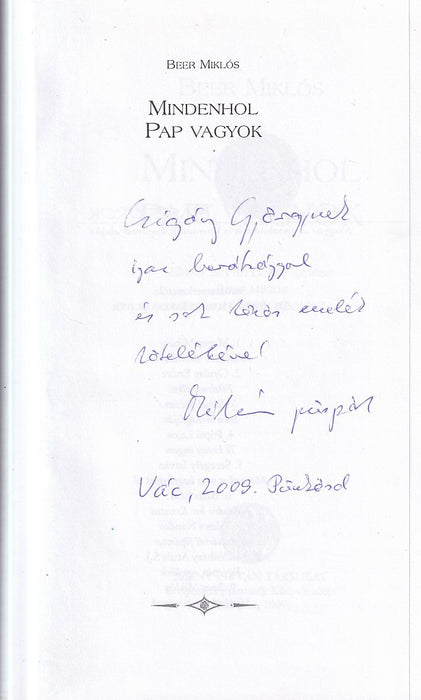 BEER MIKLÓS
MINDENHOL
PAP VAGYOK
Czigány Györgynek
igaz barátsággal
és sok közös emlék
kötelékével
Miklós püspök
Vác, 2009. Pünkösd